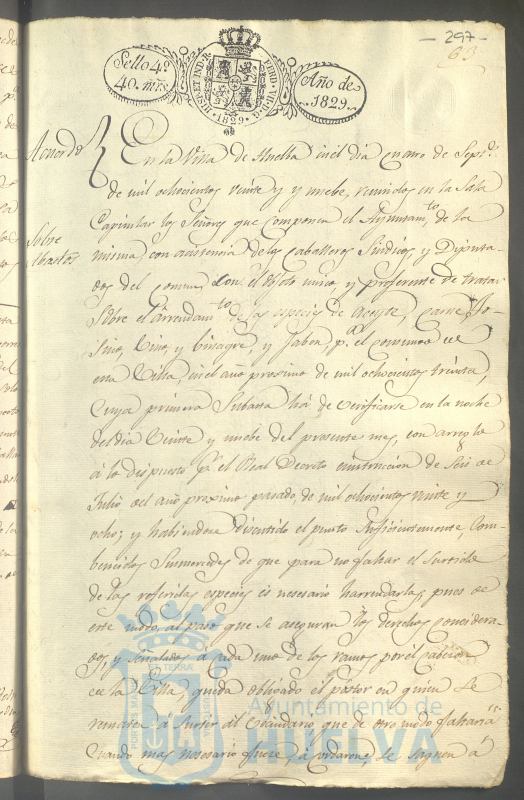 - 297 -
63
Sello 4º
40. mrs.
HISP. ET IND. R. FERD. VII. D. G. 1829.
Año de
1829.
Acuerdo
En la Villa de Huelba en el dia cuatro de Sept.e
de mil ochocientos veinte y y nuebe, reunidos en la Sala
Capitular los Señores que componen el Ayuntam.to de la
Sobre
Abastos
misma con asistencia de los caballeros Sindicos, y Diputa-
dos del comun, con el obgeto unico y preferente de tratar
sobre el Arrendam.to de las especies de Aceyte, Carne, To-
sino, Vino, y Vinagre, y Jabon, p.a el consumo de
esta Villa, en el año proximo de mil ochocientos treinta,
cuya primera Subasta há de verificarse en la noche
del dia veinte y nuebe del presente mes, con arreglo
á lo dispuesto p.r el Real Decreto é instruccion de seis de
Julio del año proximo pasado, de mil ochocientos veinte y
ocho; y habiendose discutido el punto suficientemente com-
bencidos Sus mercedes de que para no faltar el surtido
de las referidas especies es necesario harrendarlas, pues de
este modo, al paso que se aseguran los derechos considera-
dos, y señalados á cada uno de los ramos por el cabeson
de la Villa, queda obligado el postor en quien se
remate á surtir al Vecindario que de otro modo faltaria
cuando mas necesario fuese, acordaron: se saquen á
PORTUS MARIS ET TERRA
Ayuntamiento de
HUELVA